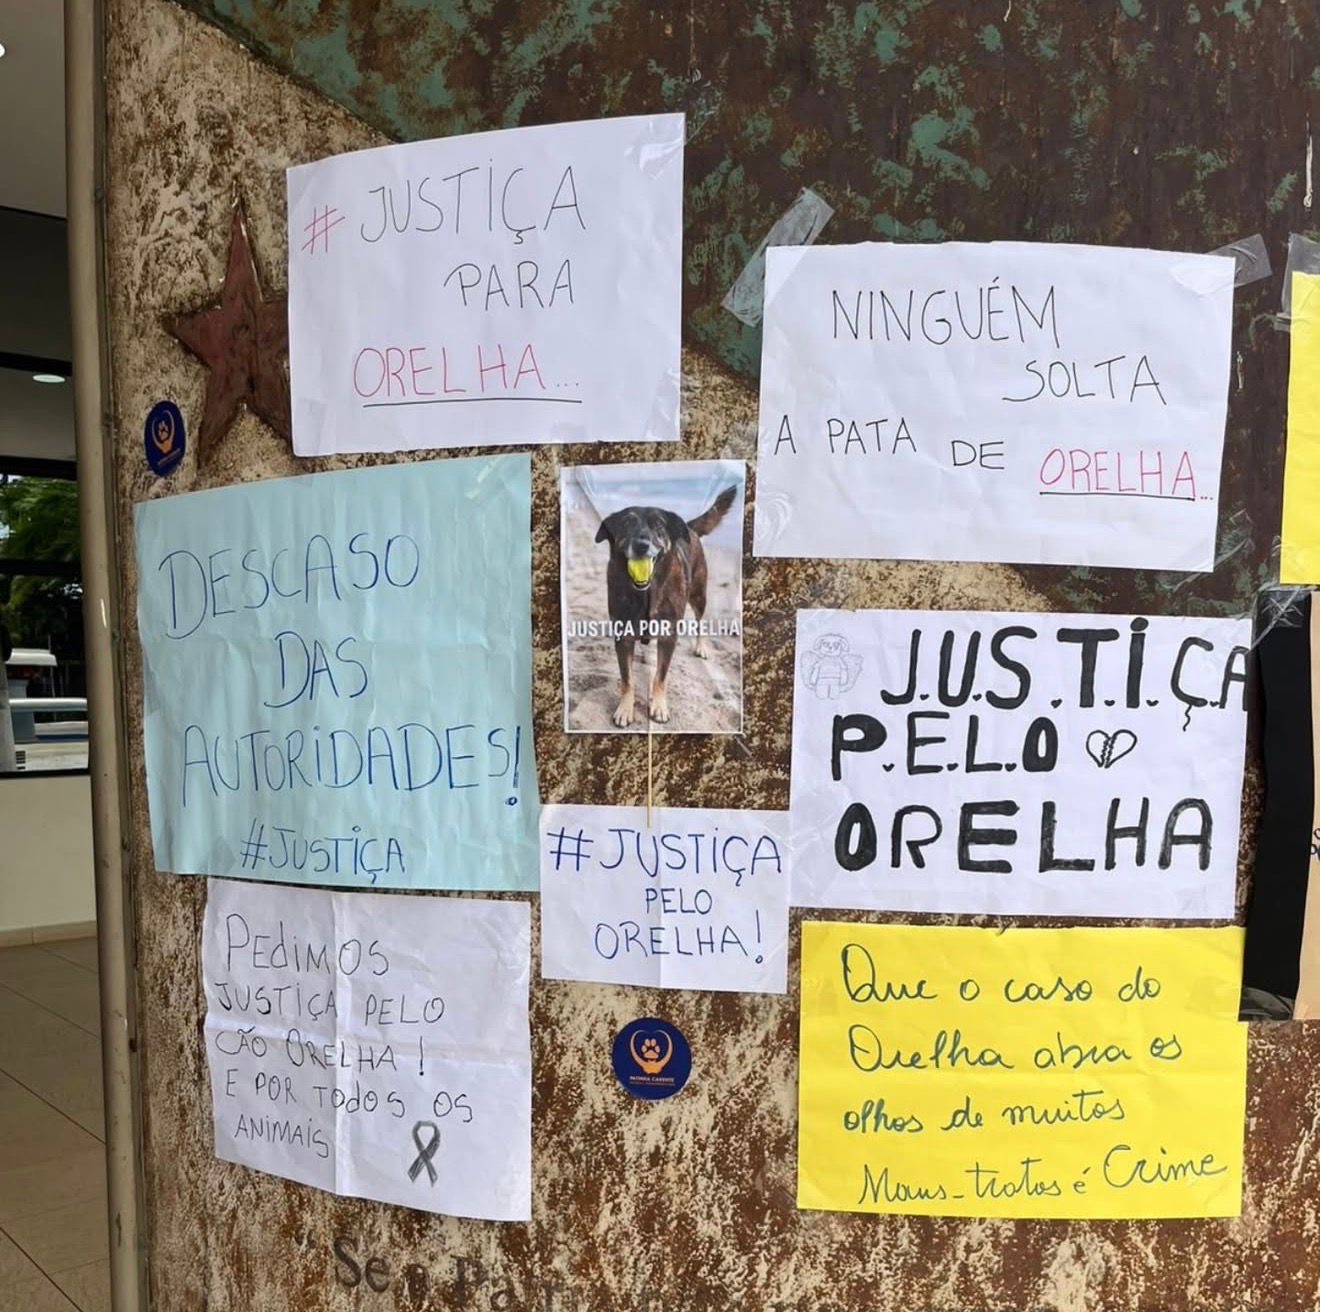 # JUSTIÇA
PARA
ORELHA...
NINGUÉM
SOLTA
A PATA DE ORELHA...
DESCASO
DAS
AUTORIDADES!
#JUSTIÇA
JUSTIÇA POR ORELHA
J.U.S.T.I.ÇA
P.E.L.O
ORELHA
#JUSTIÇA
PELO
ORELHA!
PEDIMOS
JUSTIÇA PELO
CÃO ORELHA!
E POR TODOS OS
ANIMAIS
Que o caso do
Orelha abra os
olhos de muitos
Maus-tratos é Crime
PATINHA CARENTE